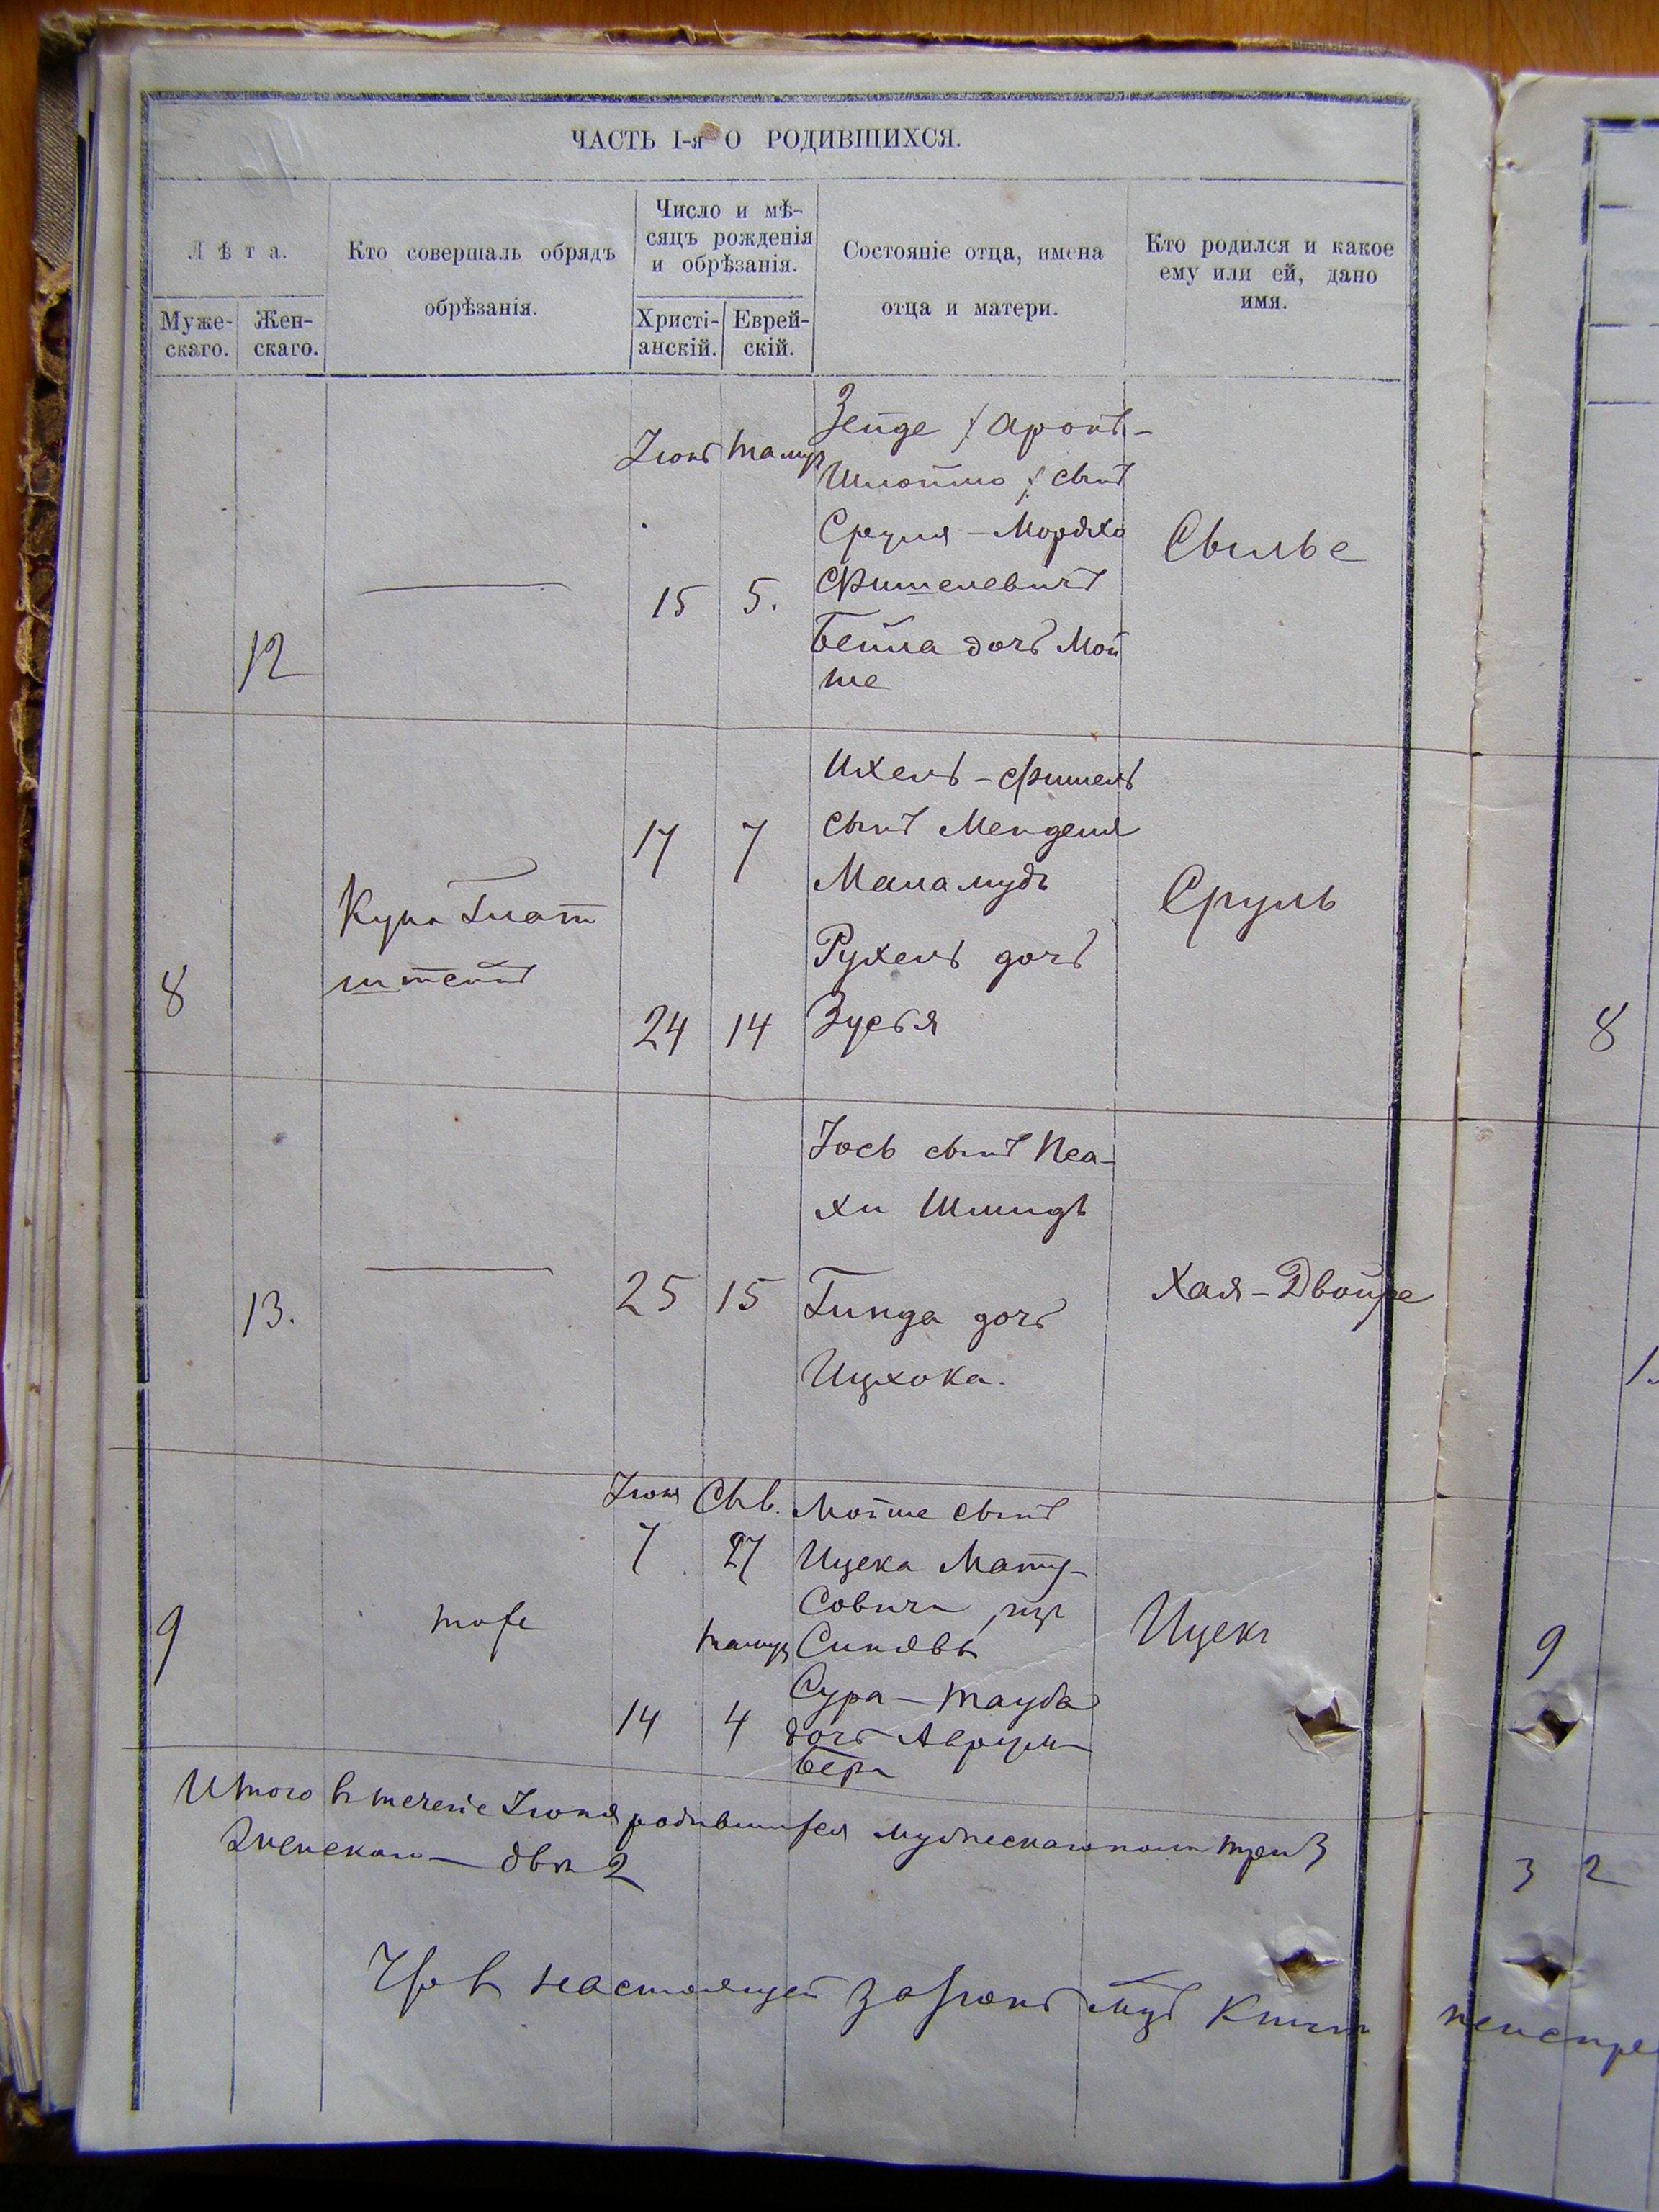 ЧАСТЬ I-я О РОДИВШИХСЯ.
Лѣта.
Муже-
скаго.
Жен-
скаго.
Кто совершалъ обрядъ
обрѣзанія.
Число и мѣ-
сяцъ рожденія
и обрѣзанія.
Христі-
анскій.
Еврей-
скій.
Состояніе отца, имена
отца и матери.
Кто родился и какое
ему или ей, дано
имя.
12
Іюнь
15
Тамуз
5.
Зейде / Аронъ-
Шлоймо / сынъ
Сруля - Мордхо
Фишелевичъ
Бейла дочь Мой
ше
8
17
7
24
14
Ихель - Фишель
сынъ Менделя
Маламудъ
Рухель дочь
Зуся
Сруль
8
13.
25
15
Іось сынъ Пса-
хи Шмидъ
Гинда дочь
Ицхока.
Хая - Двойре
9
тоже
Іюня
7
14
Сив.
27
Тамуз
4
Мойше сынъ
Ицека Мату-
совичъ изъ
Синявы
Сура - Тауба
дочь Аврумъ
Бера
Ицекъ
9
Итого въ теченіе Іюня родившихся мужескаго пола три 3
Женскаго двѣ 2
3 2
Что въ настоящей за Іюнь мцъ